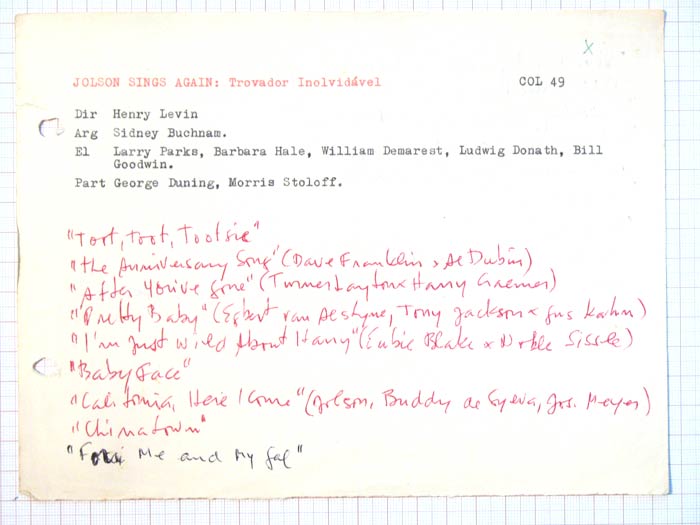 X
JOLSON SINGS AGAIN: Trovador Inolvidável COL 49
Dir Henry Levin
Arg Sidney Buchnam.
El Larry Parks, Barbara Hale, William Demarest, Ludwig Donath, Bill
Goodwin.
Part George Duning, Morris Stoloff.
"Toot, Toot, Tootsie"
"The Anniversary Song" (Dave Franklin x Al Dubin)
"After You've Gone" (Turner Layton x Harry Creamer)
"Pretty Baby" (Egbert van Alstyne, Tony Jackson x Gus Kahn)
"I'm Just Wild About Harry" (Eubie Blake x Noble Sissle)
"Baby Face"
"California, Here I Come" (Jolson, Buddy de Sylva, Jos. Meyer)
"Chinatown"
"For Me and My Gal"